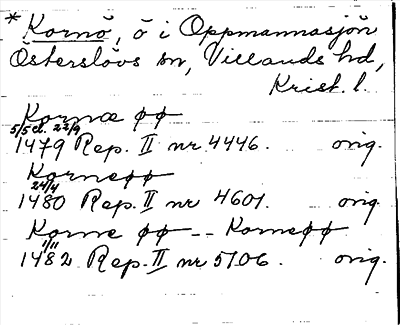 * Kornö, ö i Oppmannasjön
Österslövs sn, Villands hd,
Krist. l.
Kornæ øø
5/5 el. 22/9
1479 Rep. II nr 4446. orig.
Korneøø
24/4
1480 Rep. II nr 4601. orig
Korne øø -- Korneøø
1/11
1482 Rep. II nr 5106. orig.